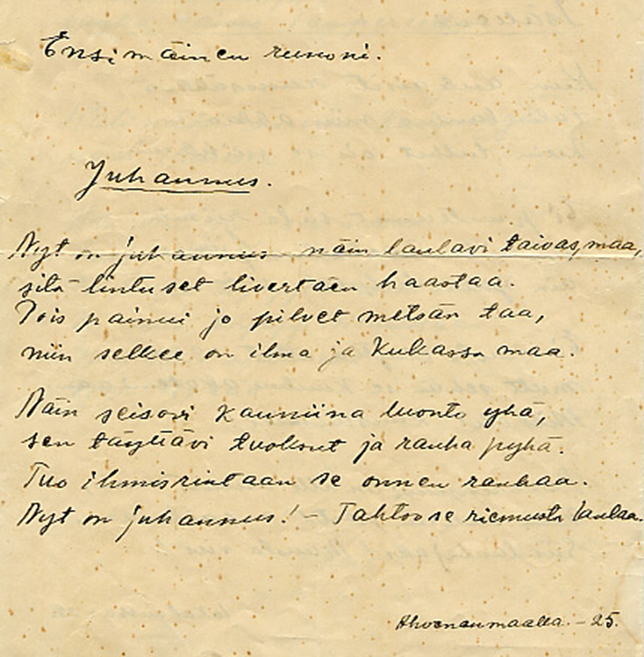 Ensimäinen runoni.
Juhannus.
Nyt on juhannus näin laulavi taivas, maa,
sitä lintuset livertäen haastaa.
Pois painui jo pilvet metsän taa,
niin selkee on ilma ja kukassa maa.
Näin seisovi kauniina luonto yhä,
sen täyttävi tuoksut ja rauha pyhä.
Tuo ihmisrintaan se onnen rauhaa.
Nyt on juhannus! – Tahtoo se riemusta laulaa.
Ahvenanmaalla. – 25.